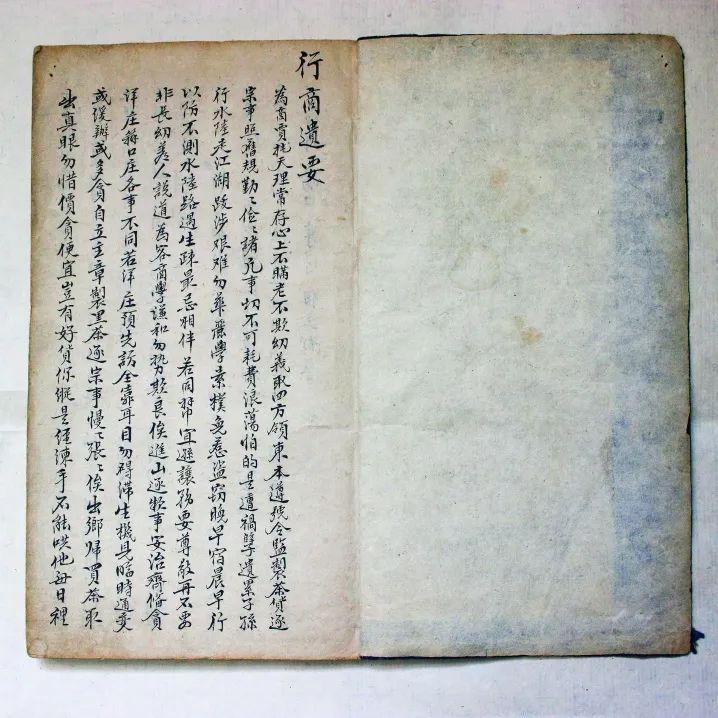 行商遺要
為商賈把天理常存心上不瞞老不欺幼義取四方領東本遵號令監製茶貨逐
宗事照舊規勤〻儉〻諸凡事切不可耗費浪蕩怕的是遭禍孽遺累子孫
行水陸走江湖跋涉艰难勿華麗學素樸免惹盗窃晚早宿晨早行
以防不測水陸路過生疎最忌相伴若同幫宜遜讓務要尊敬再不要
非長幼羞人說道為客商學謙和勿势欺良俟進山逐欵事安治齊俻貪
洋庄辦口庄各事不同若洋庄預先訪全靠耳目勿碍滯生機見臨時通变
或緩辦或多貪自立主章製黑茶逐宗事慢〻張〻俟出鄉歸買茶取
出真眼勿惜價貪便宜豈有好貨你縱是經練手不能哄他每日裡